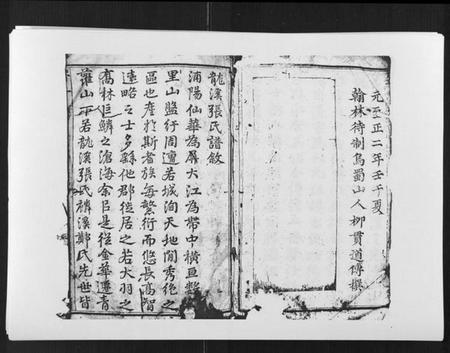 元至正二年壬午夏
翰林待制烏蜀山人柳貫道傳撰
龍溪張氏譜敘
浦陽仙華為屏大江為帶中橫亘數
里山盤紆周遭若城洵天地間秀絕之
區也產於斯者族每繁衍而悠長高智
遠略之士多繇他郡徙居之若大羽之
喬林巨鱗之滄海余自是從金華遷青
蘿山下若龍溪張氏麟溪鄭氏先世皆